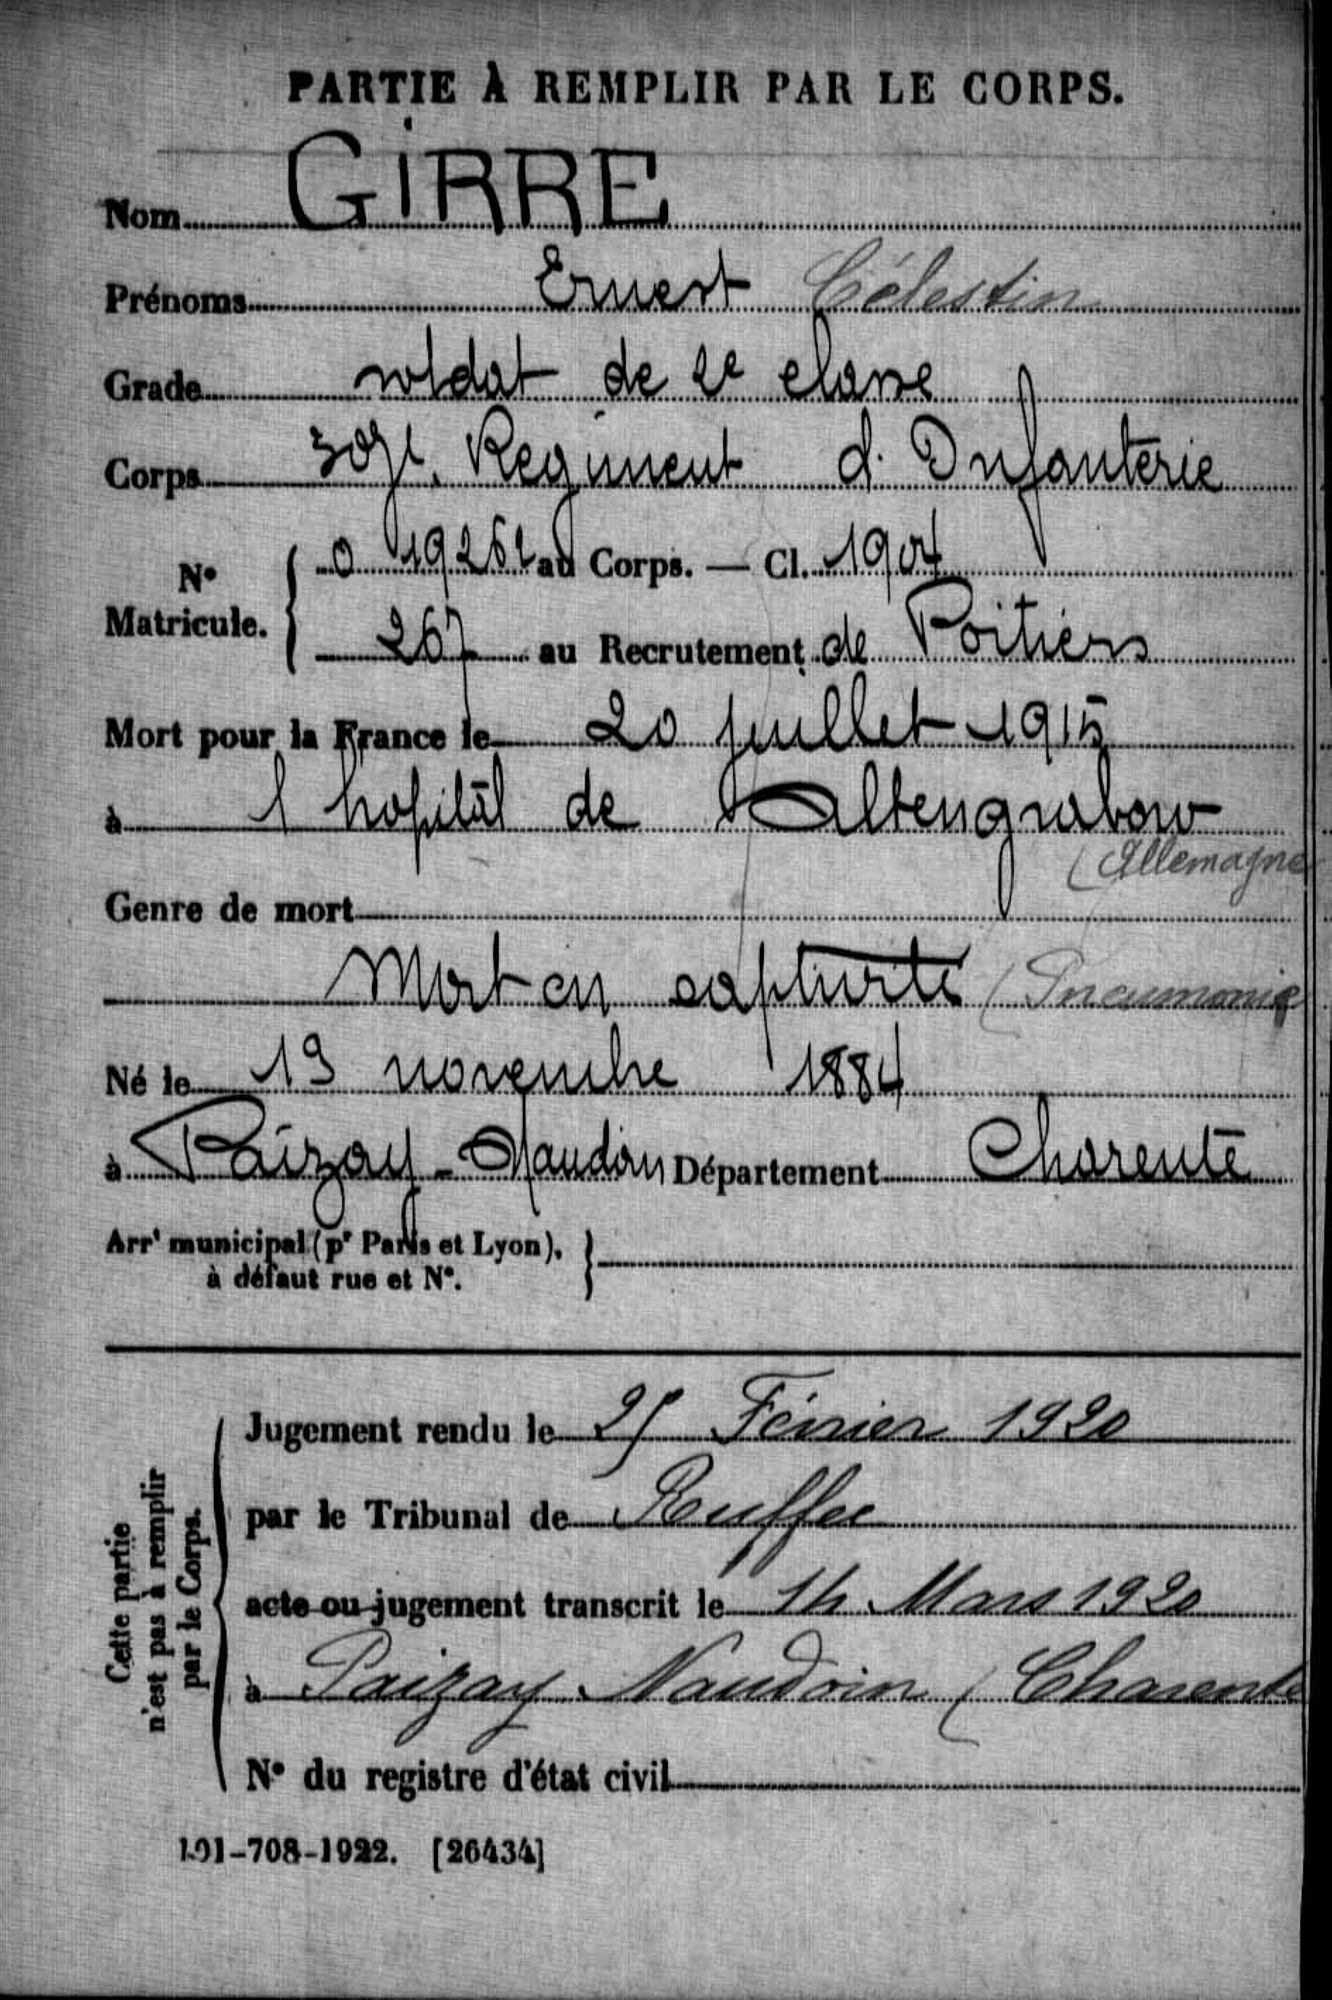 PARTIE À REMPLIR PAR LE CORPS.
Nom GIRRE
Prénoms Ernest Célestin
Grade soldat de 2e classe
Corps 307e Regiment d'Infanterie
N° Matricule. 0 19262 au Corps. — Cl. 1904
267 au Recrutement de Poitiers
Mort pour la France le 20 juillet 1915
à l hopital de Altengrabow
(Allemagne
Genre de mort
Mort en captivité (Pneumonie
Né le 13 novembre 1884
à Paizay-Naudoin Département Charente
Arrt municipal (pr Paris et Lyon),
à défaut rue et N°.
Cette partie
n'est pas à remplir
par le Corps.
Jugement rendu le 25 Février 1920
par le Tribunal de Ruffec
acte ou jugement transcrit le 14 Mars 1920
à Paizay Naudoin (Charente
N° du registre d'état civil
101-708-1922. [26434]